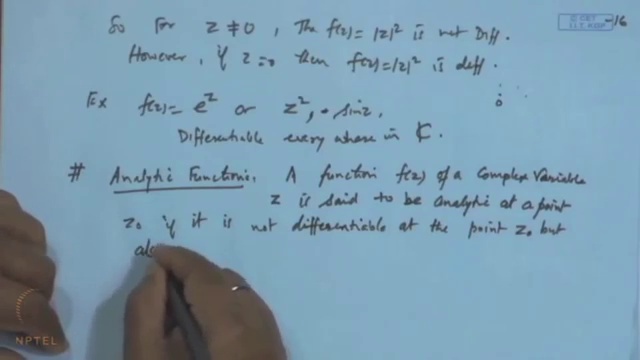 So For z ≠ 0, The f(z) = |z|² is not Diff.
However, if z = 0 then f(z) = |z|² is diff.
Ex f(z) = e^z or z², sin z,
Differentiable every where in ℂ.
# Analytic Functions. A function f(z) of a complex variable
z is said to be analytic at a point
z₀ if it is not differentiable at the point z₀ but
als
© CET
I.I.T. KGP
-16
0
NPTEL